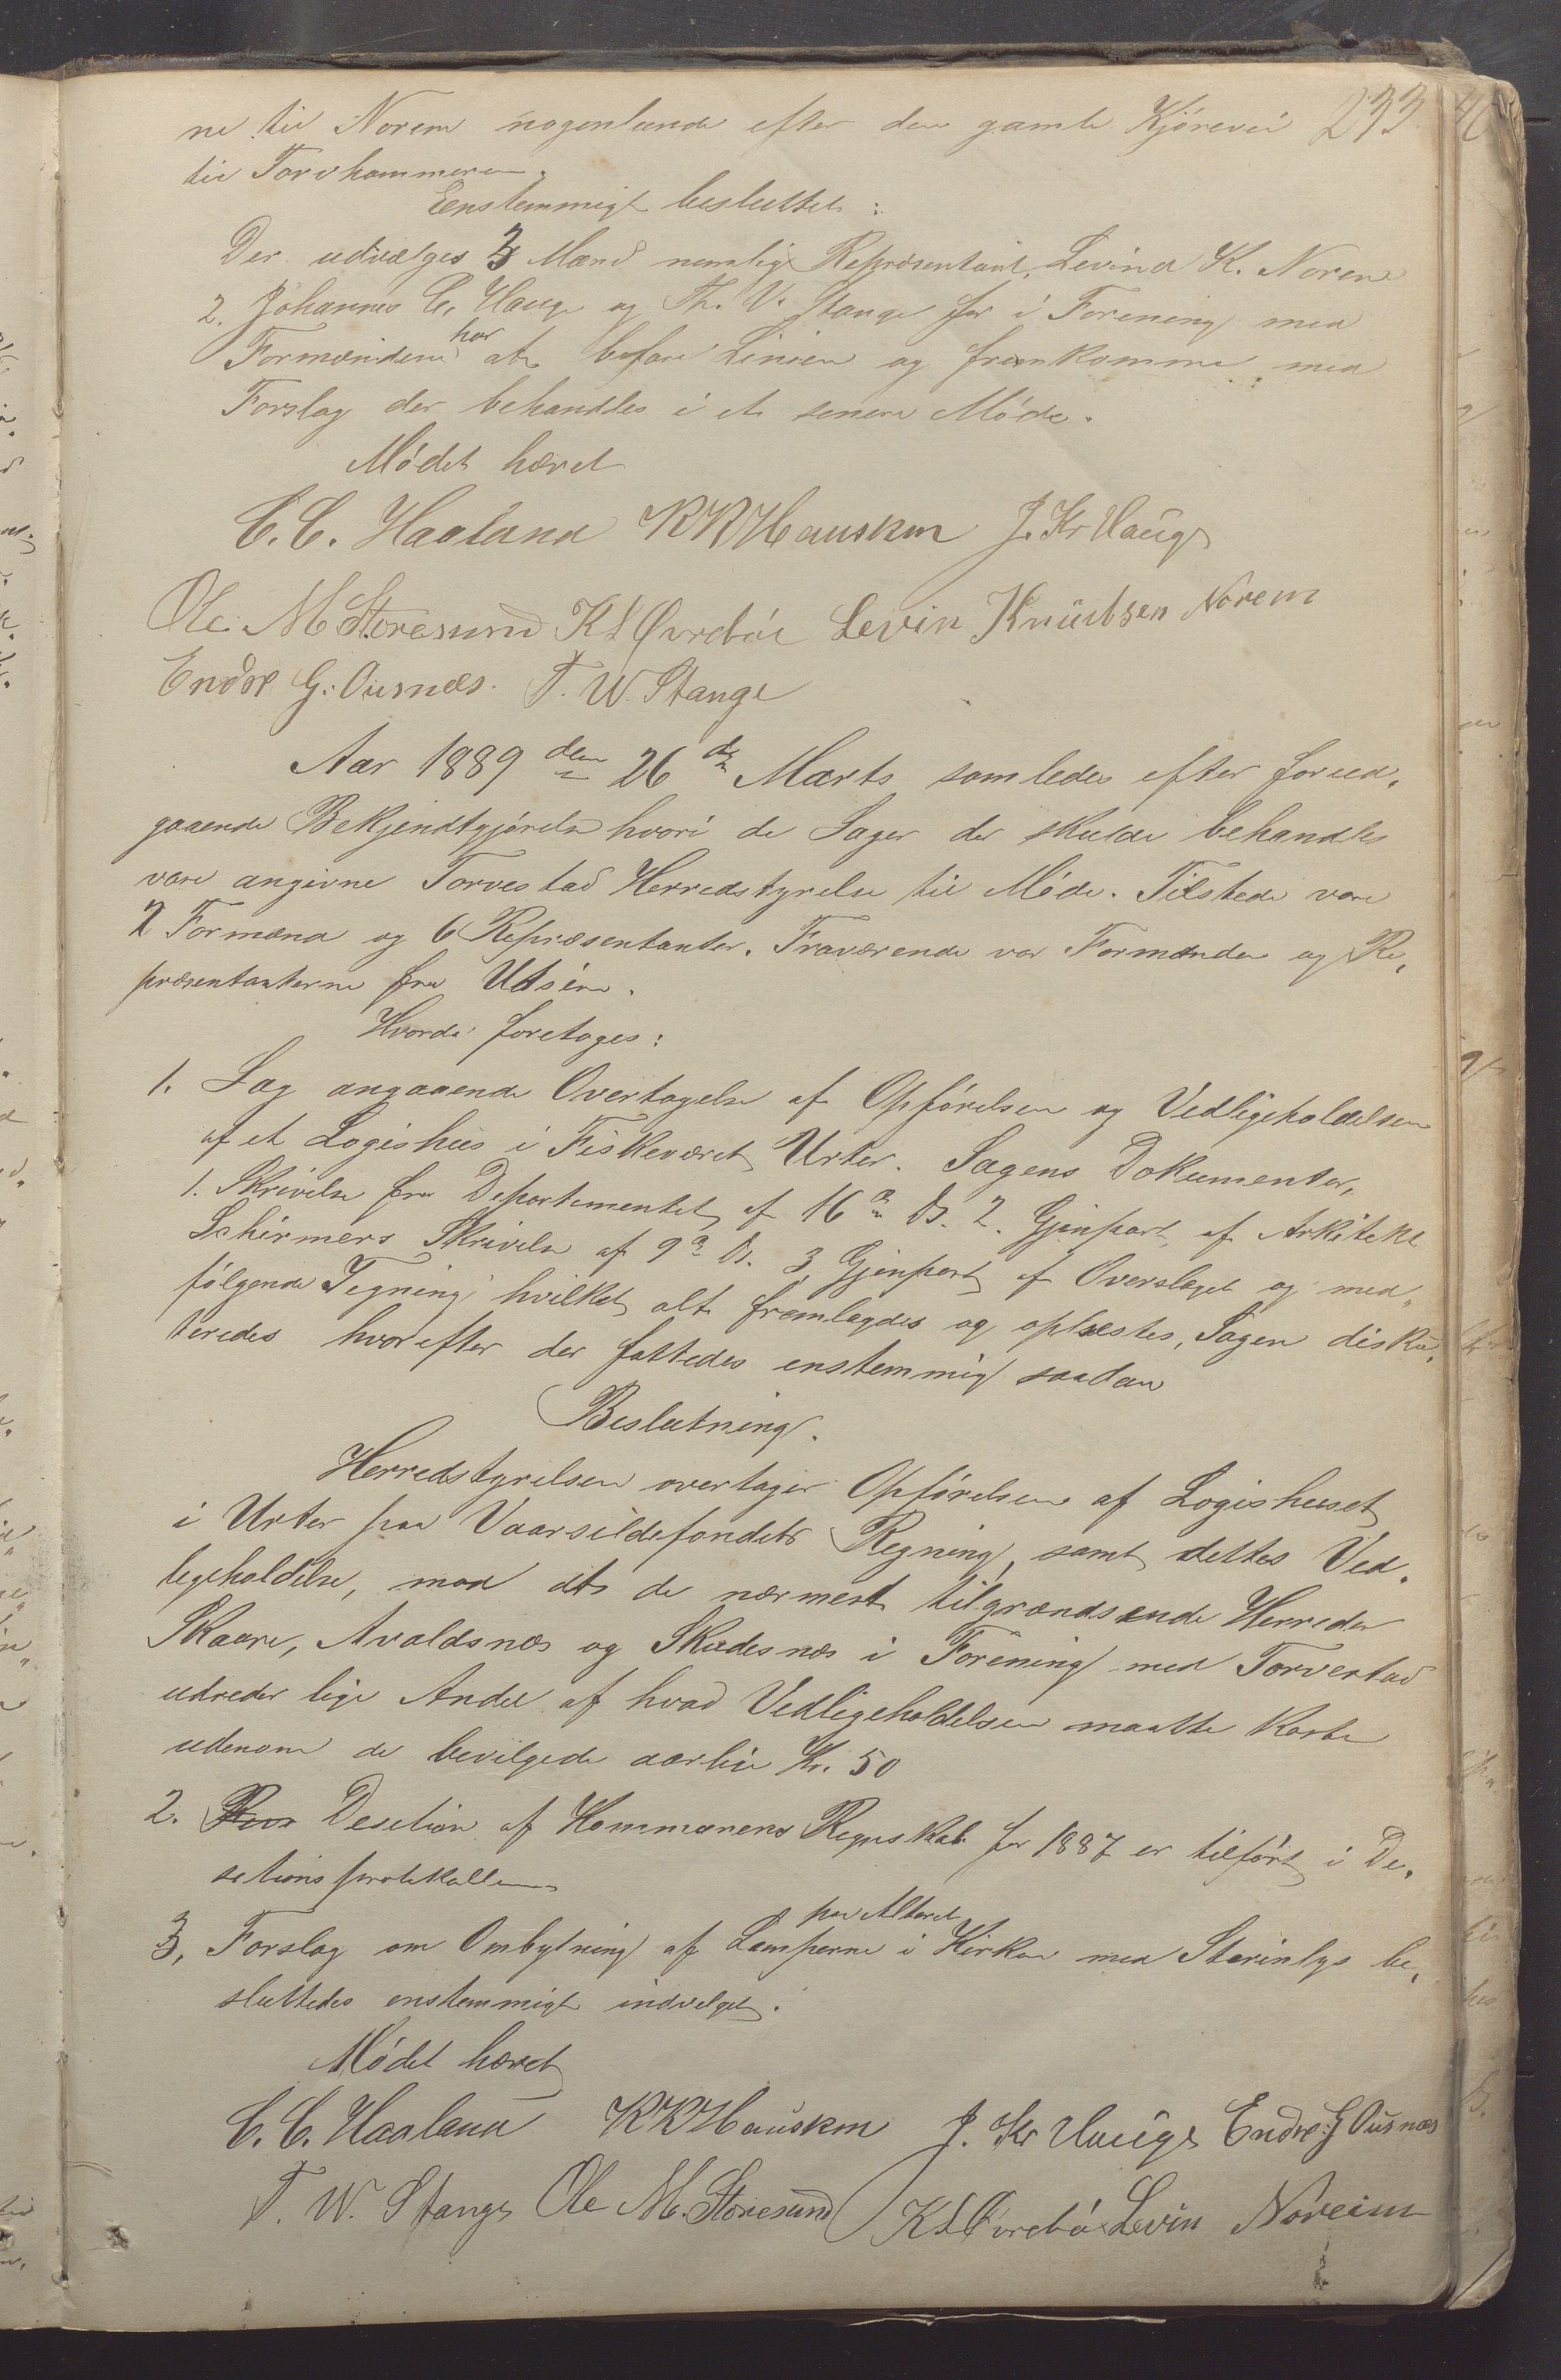 233
ne til Norem nogenlunde efter den gamle Kjørevei
til Torvhammeren.
Eenstemmigt besluttet:
Der udvælges 3 Mænd nemlig Repræsentant Levind K. Norem
2. Johannes C. Hauge og Th. V. Stange for i Forening med
Formændene har at befare Linien og fremkomme med
Forslag der behandles i et senere Møde.
Mødet hævet
C. C. Haaland K K Hausken J. Kr Hauge
Ole M Storesund K L Øvrebø Levin Knudtsen Norem
Endre G. Ousnæs. T. W. Stange
Aar 1889 den 26de Marts samledes efter forud,
gaaende Bekjendtgjørelse hvori de Sager der skulde behandles
vare angivne Torvestad Herredstyrelse til Møde. Tilstede vare
2 Formænd og 6 Repræsentanter. Fraværende var Formanden og Re,
præsentanterne fra Utsire.
Hvorda foretoges:
1. Sag angaaende Overtagelse af Opførelsen og Vedligeholdelsen
af et Logishus i Fiskeværet Urter. Sagens Dokumenter,
1. Skrivelse fra Departementet af 16de ds. 2. Gjenpart af Arkitekt
Schirmers Skrivelse af 9de ds. 3 Gjenpart af Overslaget og med,
følgende Tegning hvilket alt fremlagdes og oplæstes, Sagen disku,
teredes hvorefter der fattedes enstemmig saadan
Beslutning.
Herredstyrelsen overtager Opførelsen af Logishuset
i Urter paa Vaarsildefondets Regning, samt dettes Ved,
ligeholdelse, mod at de nærmest tilgrændsende Herreder
Skaare, Avaldsnes og Skudesnes i Forening med Torvestad
udreder lige Andel af hvad Vedligeholdelsen maatte koste
udenom de bevilgede aarlige Kr. 50
2. Desetion af Kommunens Regnskab for 1887 er tilført i De,
setionsprotokollen
3, Forslag om Ombytning af Lamperne paa Alteret i Kirken med Stearinlys be,
sluttedes enstemmigt indvilget.
Mødet hævet
C. C. Haaland K K Hausken J. Kr Hauge Endre G Ousnæs
T. W. Stange Ole M. Storesund K L Øvrebø Levin Noreim